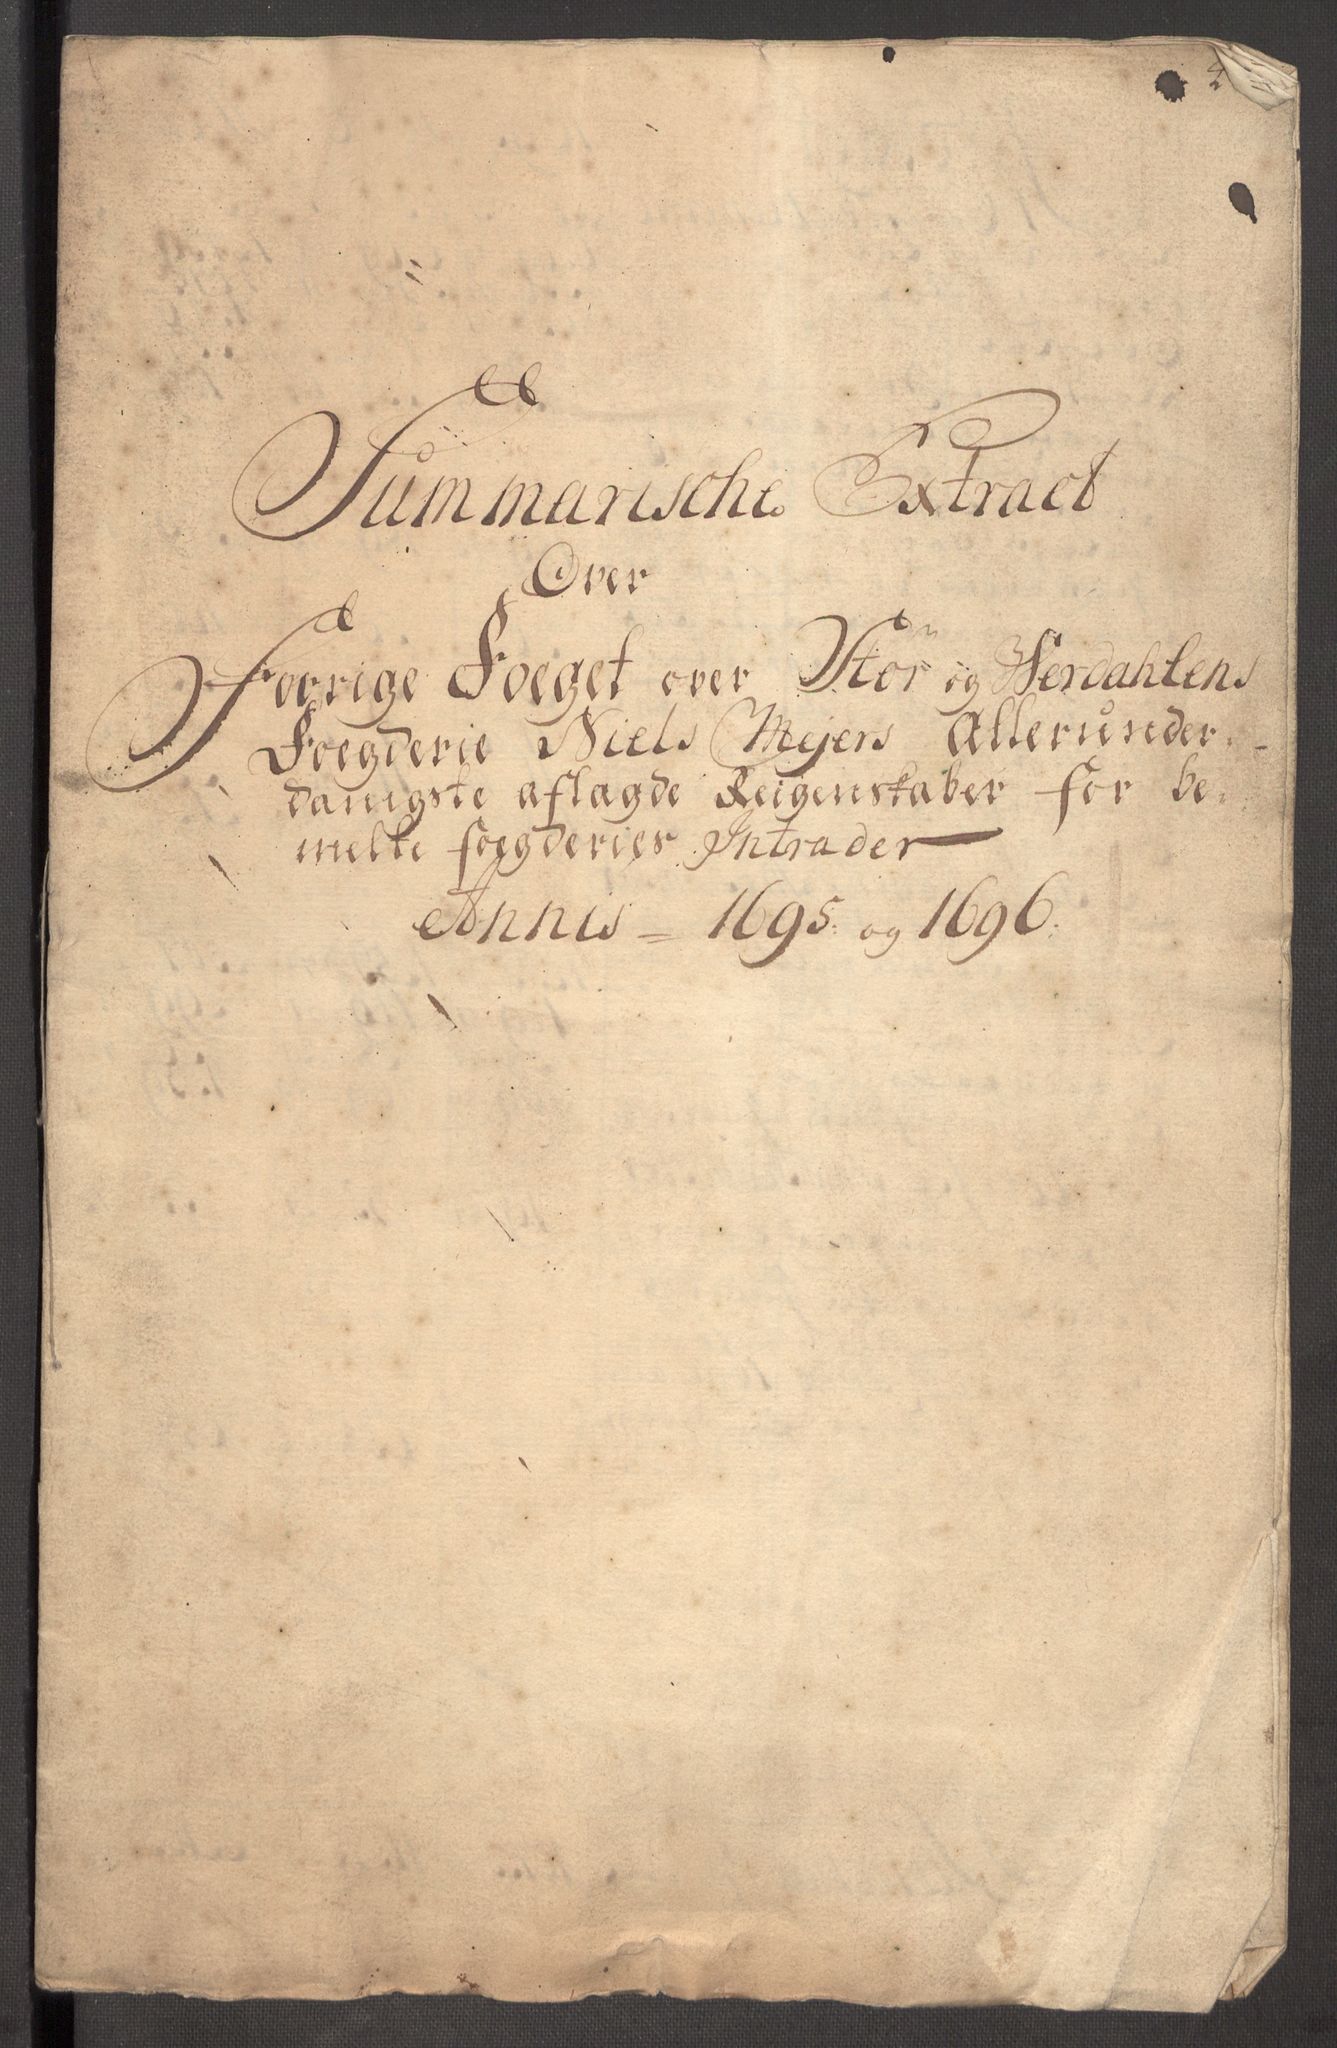 Summarische Extract
Over
Forrige Foeget over Stør og Werdahlens
Foegderie Niels Mejers Allerunder-
danigste aflagde Reigenskaber for be-
melte foegderies Intrader
Annis = 1695. og 1696.